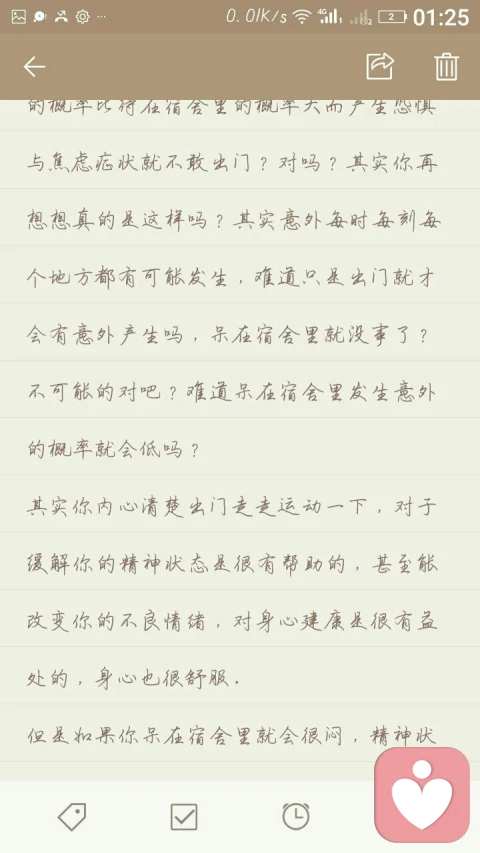 0.01K/s 4G 2 2 01:25
的概率比待在宿舍里的概率大而产生恐惧
与焦虑症状就不敢出门？对吗？其实你再
想想真的是这样吗？其实意外每时每刻每
个地方都有可能发生，难道只是出门就才
会有意外产生吗，呆在宿舍里就没事了？
不可能的对吧？难道呆在宿舍里发生意外
的概率就会低吗？
其实你内心清楚出门走走运动一下，对于
缓解你的精神状态是很有帮助的，甚至能
改变你的不良情绪，对身心建康是很有益
处的，身心也很舒服．
但是如果你呆在宿舍里就会很闷，精神状